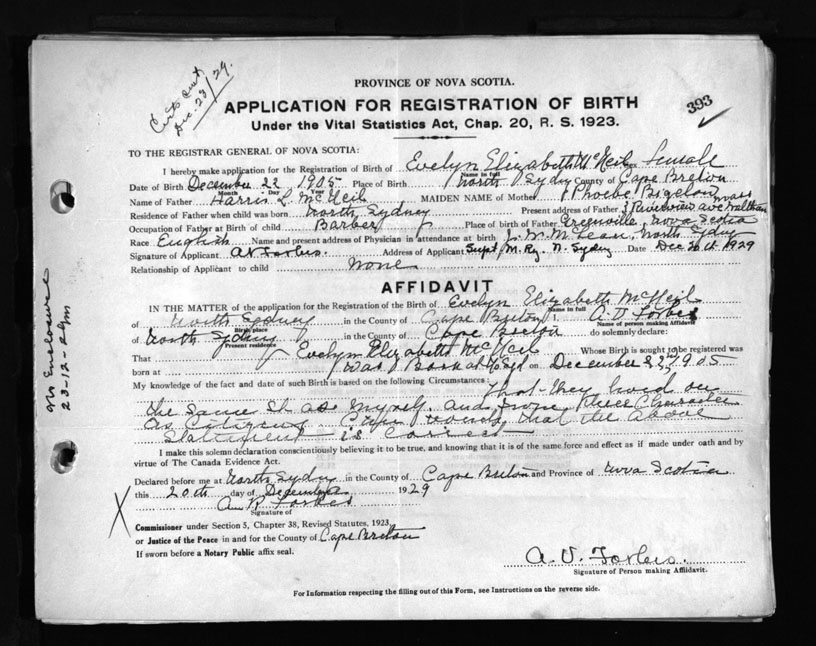 Certs sent
Dec. 23/29.
393
PROVINCE OF NOVA SCOTIA.
APPLICATION FOR REGISTRATION OF BIRTH
Under the Vital Statistics Act, Chap. 20, R. S. 1923.
TO THE REGISTRAR GENERAL OF NOVA SCOTIA:
I hereby make application for the Registration of Birth of Evelyn Elizabeth McNeil Sex Female
Name in full
Date of Birth December 22 1905 Place of Birth North Sydney County of Cape Breton
Month Day Year
Name of Father Harris L. McNeil MAIDEN NAME of Mother Phoebe Bigelow
Residence of Father when child was born North Sydney Present address of Father Riverview ave Waltham Mass
Occupation of Father at Birth of child Barber Place of birth of Father Greenville, Nova Scotia
Race English Name and present address of Physician in attendance at birth McLean, North Sydney
Signature of Applicant A V Forbes. Address of Applicant Supt M. Ry. N. Sydney Date Dec 20th 1929
Relationship of Applicant to child None
AFFIDAVIT
IN THE MATTER of the application for the Registration of the Birth of Evelyn Elizabeth McNeil
Name in full
of North Sydney in the County of Cape Breton I, A. V Forbes
Birth place Name of person making Affidavit
of North Sydney in the County of Cape Breton do solemnly declare:
Present residence
That Evelyn Elizabeth McNeil Whose Birth is sought to be registered was
born at was Born at No Syd on December 22 1905
My knowledge of the fact and date of such Birth is based on the following Circumstances: That they lived on
the same St as myself. and from their Character
as Citizens that the above
Statement is Correct
I make this solemn declaration conscientiously believing it to be true, and knowing that it is of the same force and effect as if made under oath and by
virtue of The Canada Evidence Act.
Declared before me at North Sydney in the County of Cape Breton and Province of Nova Scotia
this 20th day of December 1929
Forbes
Signature of
Commissioner under Section 5, Chapter 38, Revised Statutes, 1923,
or Justice of the Peace in and for the County of Cape Breton
If sworn before a Notary Public affix seal.
A. V. Forbes.
Signature of Person making Affidavit.
For Information respecting the filling out of this Form, see Instructions on the reverse side.
Enclosure
23-12-29
X